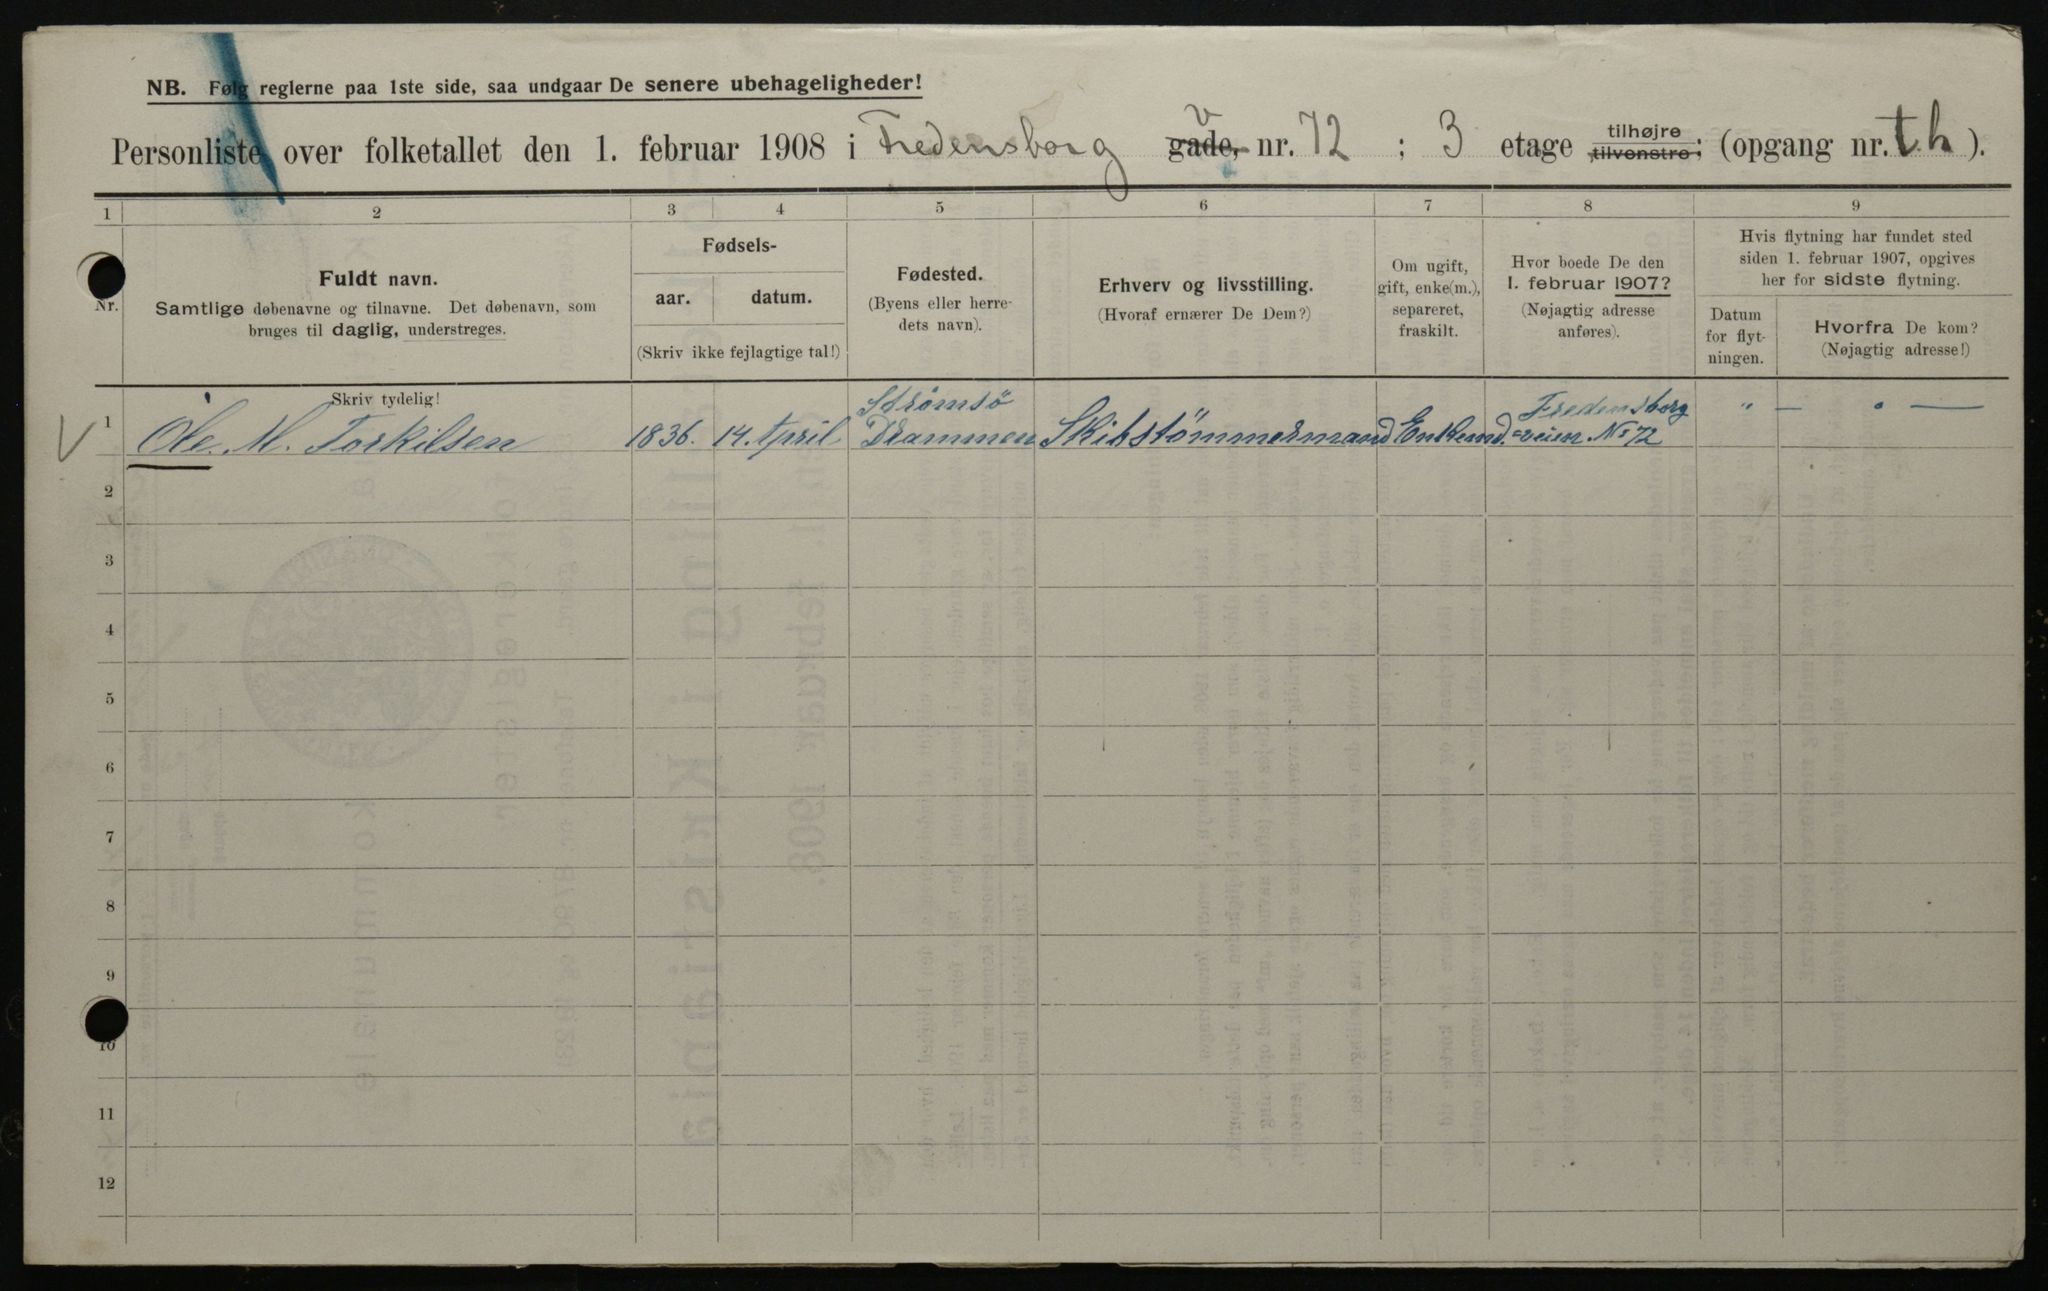 NB. Følg reglerne paa 1ste side, saa undgaar De senere ubehageligheder!
Personliste over folketallet den 1. februar 1908 i Fredensborg gade, v nr. 72 ; 3 etage tilhøjre tilvenstre; (opgang nr. t.h ).
1 2 3 4 5 6 7 8 9
Nr.
Fuldt navn.
Samtlige døbenavne og tilnavne. Det døbenavn, som
bruges til daglig, understreges.
Fødsels-
aar. datum.
(Skriv ikke fejlagtige tal!)
Fødested.
(Byens eller herre-
dets navn).
Erhverv og livsstilling.
(Hvoraf ernærer De Dem?)
Om ugift,
gift, enke(m.),
separeret,
fraskilt.
Hvor boede De den
1. februar 1907?
(Nøjagtig adresse
anføres).
Hvis flytning har fundet sted
siden 1. februar 1907, opgives
her for sidste flytning.
Datum
for flyt-
ningen.
Hvorfra De kom?
(Nøjagtig adresse!)
Skriv tydelig!
Strømsö Fredensborg " — " —
1 Ole. M. Torkilsen 1836. 14. April Drammen Skibstömmermand Enkemd. =veien. No 72
2
3
4
5
6
7
8
9
10
11
12